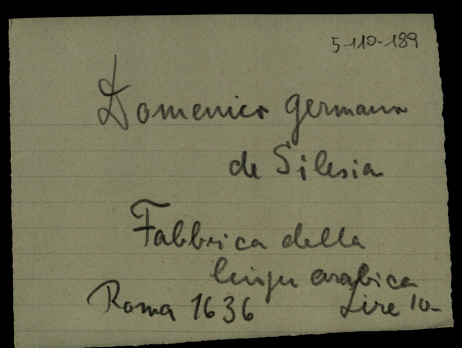 5-110-189
Domenico germano
de Silesia
Fabbrica della
lingu arabica
Roma 1636 Lire 10-